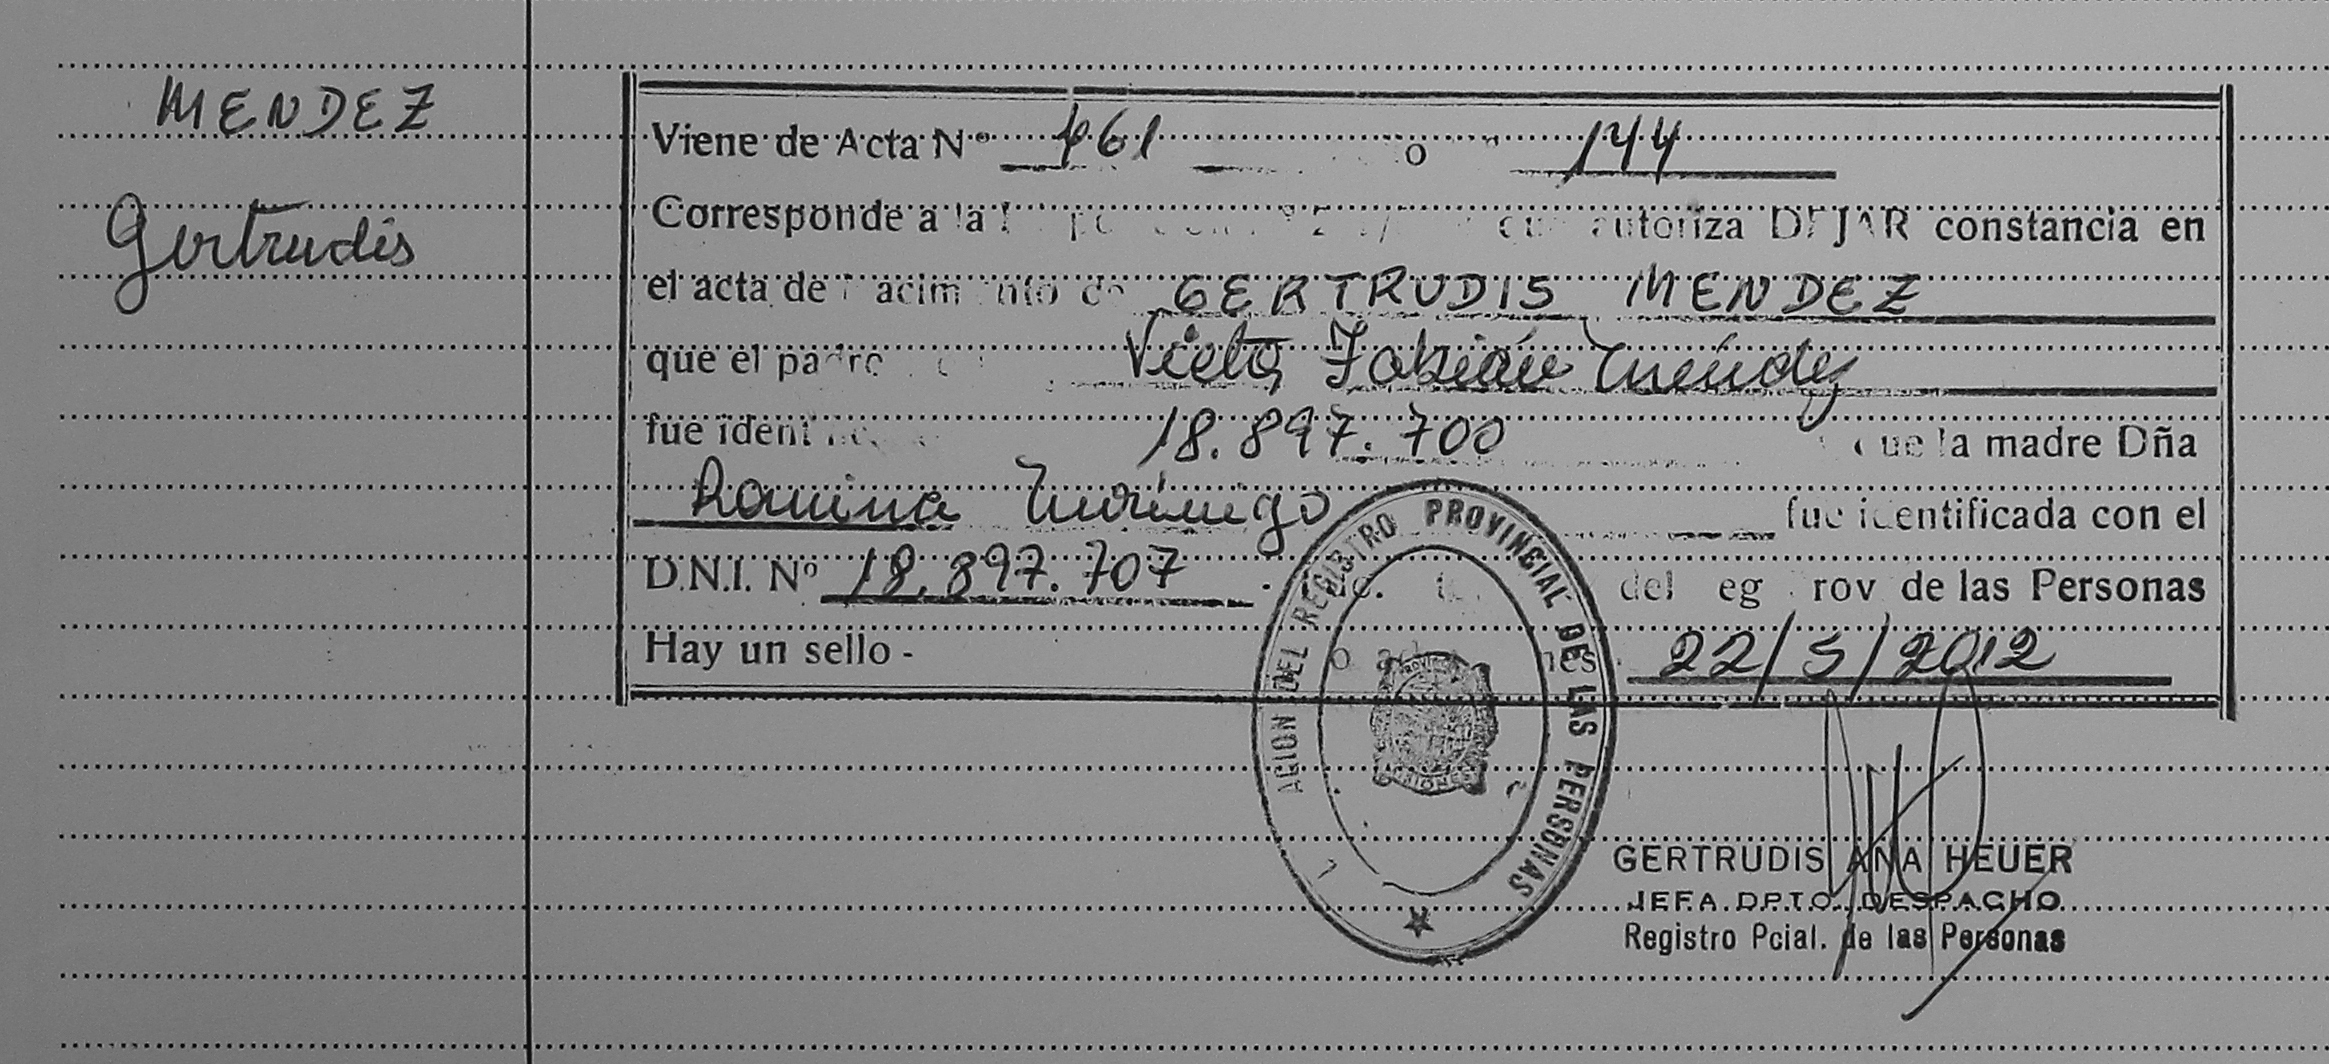 MENDEZ
Gertrudis
Viene de Acta Nº 461 o 144
Corresponde a la autoriza DEJAR constancia en
el acta de nacimiento de GERTRUDIS MENDEZ
que el padre Victor Fabián Méndez
fue 18.897.700 que la madre Dña
Romina Morínigo fue identificada con el
D.N.I. Nº 18.897.707 del de las Personas
Hay un sello - 22/5/2012
REGISTRO PROVINCIAL DE LAS PERSONAS
GERTRUDIS ANA HEUER
JEFA DPTO. DESPACHO
Registro Pcial. de las Personas